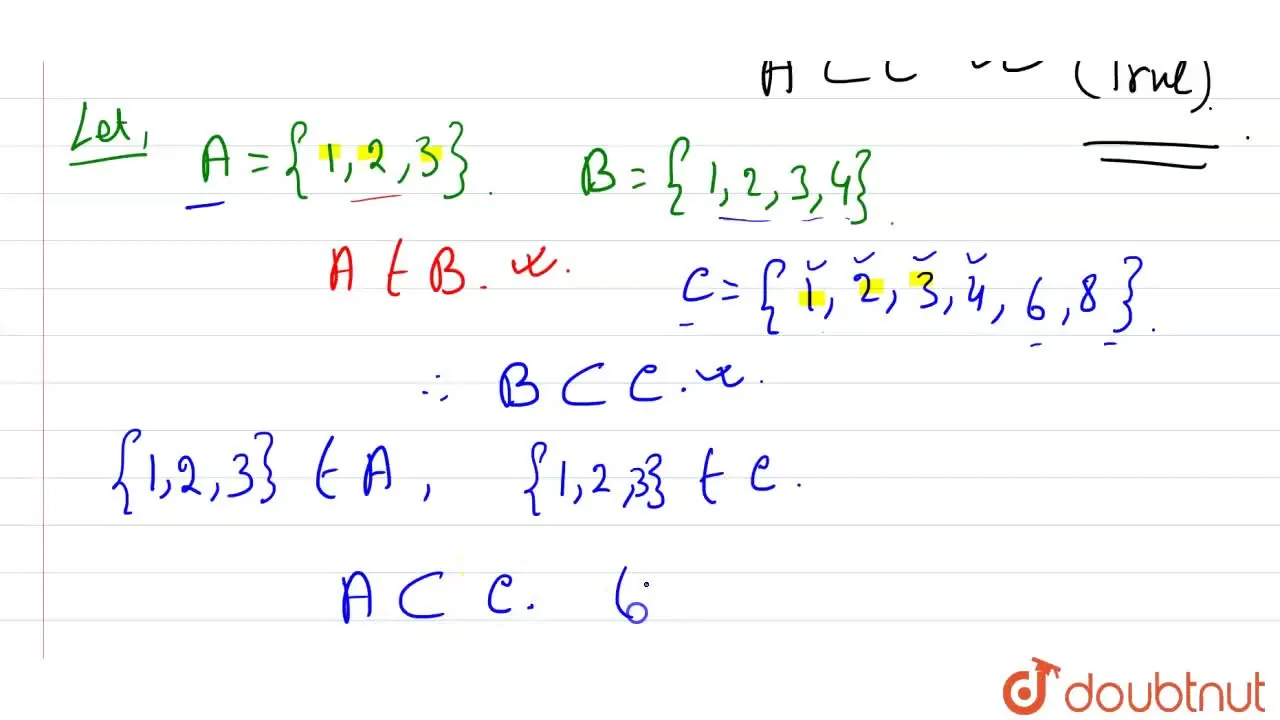 A ⊂ C (True).
Let, A = {1, 2, 3}. B = {1, 2, 3, 4}.
A ∈ B.
C = {1, 2, 3, 4, 6, 8}.
∴ B ⊂ C.
{1, 2, 3} ∈ A, {1, 2, 3} ∈ C.
A ⊂ C. (
doubtnut